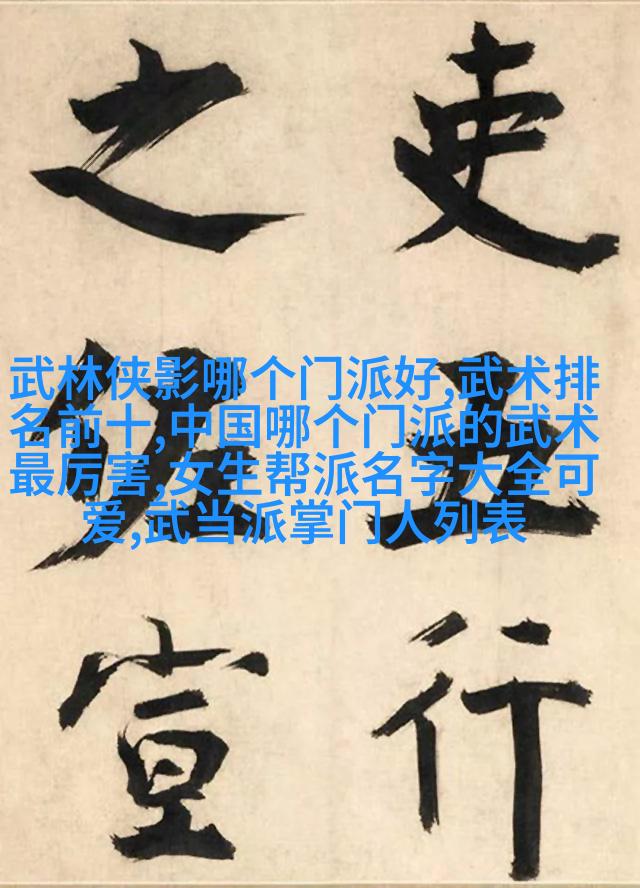 吏五行
之佐宣
武林侠影哪个门派好,武术排
名前十,中国哪个门派的武术
最厉害,女生帮派名字大全可
爱,武当派掌门人列表